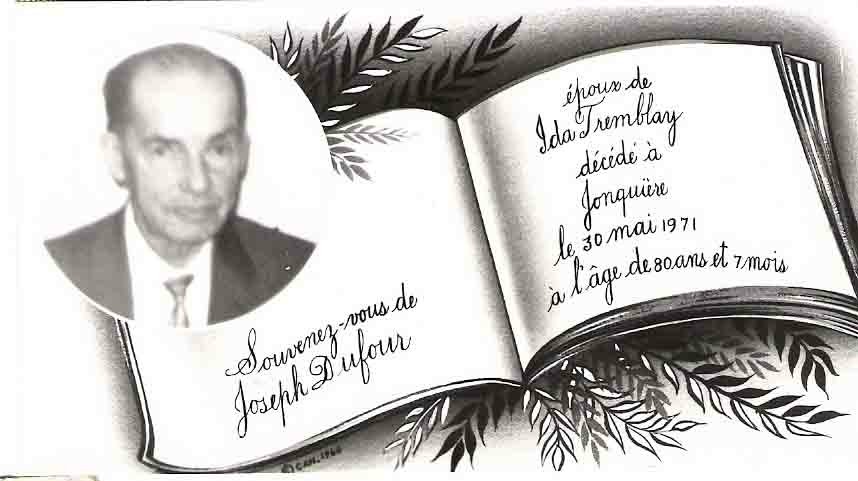 Souvenez-vous de
Joseph Dufour
époux de
Ida Tremblay
décédé à
Jonquière
le 30 mai 1971
à l'âge de 80 ans et 7 mois